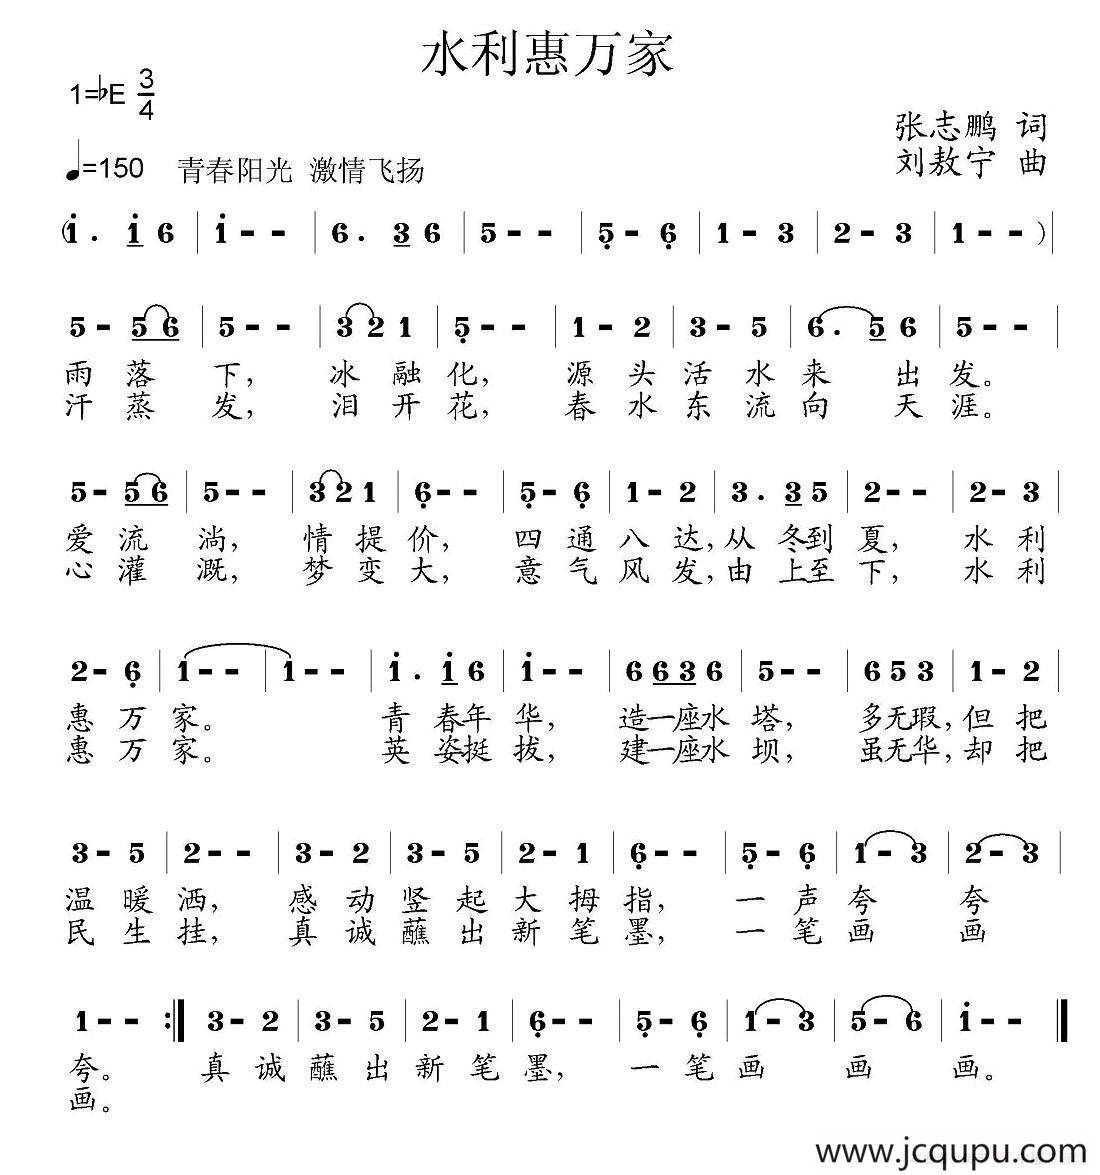 水利惠万家
1=♭E 3/4
张志鹏 词
♩=150 青春阳光 激情飞扬
刘敖宁 曲
(1̇ . 1̇ 6 | 1̇ - - | 6 . 3 6 | 5 - - | 5̣ - 6̣ | 1 - 3 | 2 - 3 | 1 - - ) |
5 - 5 6 | 5 - - | 3 2 1 | 5̣ - - | 1 - 2 | 3 - 5 | 6 . 5 6 | 5 - - |
雨 落 下， 冰 融 化， 源 头 活 水 来 出 发。
汗 蒸 发， 泪 开 花， 春 水 东 流 向 天 涯。
5 - 5 6 | 5 - - | 3 2 1 | 6̣ - - | 5̣ - 6̣ | 1 - 2 | 3 . 3 5 | 2 - - | 2 - 3
爱 流 淌， 情 提 价， 四 通 八 达，从 冬到 夏， 水 利
心 灌 溉， 梦 变 大， 意 气 风 发，由 上至 下， 水 利
2 - 6̣ | 1 - - | 1 - - | 1̇ . 1̇ 6 | 1̇ - - | 6 6 3 6 | 5 - - | 6 5 3 | 1 - 2 |
惠 万 家。 青 春年 华， 造一座水 塔， 多无瑕，但 把
惠 万 家。 英 姿挺 拔， 建一座水 坝， 虽无华，却 把
3 - 5 | 2 - - | 3 - 2 | 3 - 5 | 2 - 1 | 6̣ - - | 5̣ - 6̣ | 1 - 3 | 2 - 3 |
温 暖 洒， 感 动 竖 起 大 拇 指， 一 声 夸 夸
民 生 挂， 真 诚 蘸 出 新 笔 墨， 一 笔 画 画
1 - - :‖ 3 - 2 | 3 - 5 | 2 - 1 | 6̣ - - | 5̣ - 6̣ | 1 - 3 | 5 - 6 | 1̇ - - ‖
夸。 真 诚 蘸 出 新 笔 墨， 一 笔 画 画 画。
画。
www.jcqupu.com